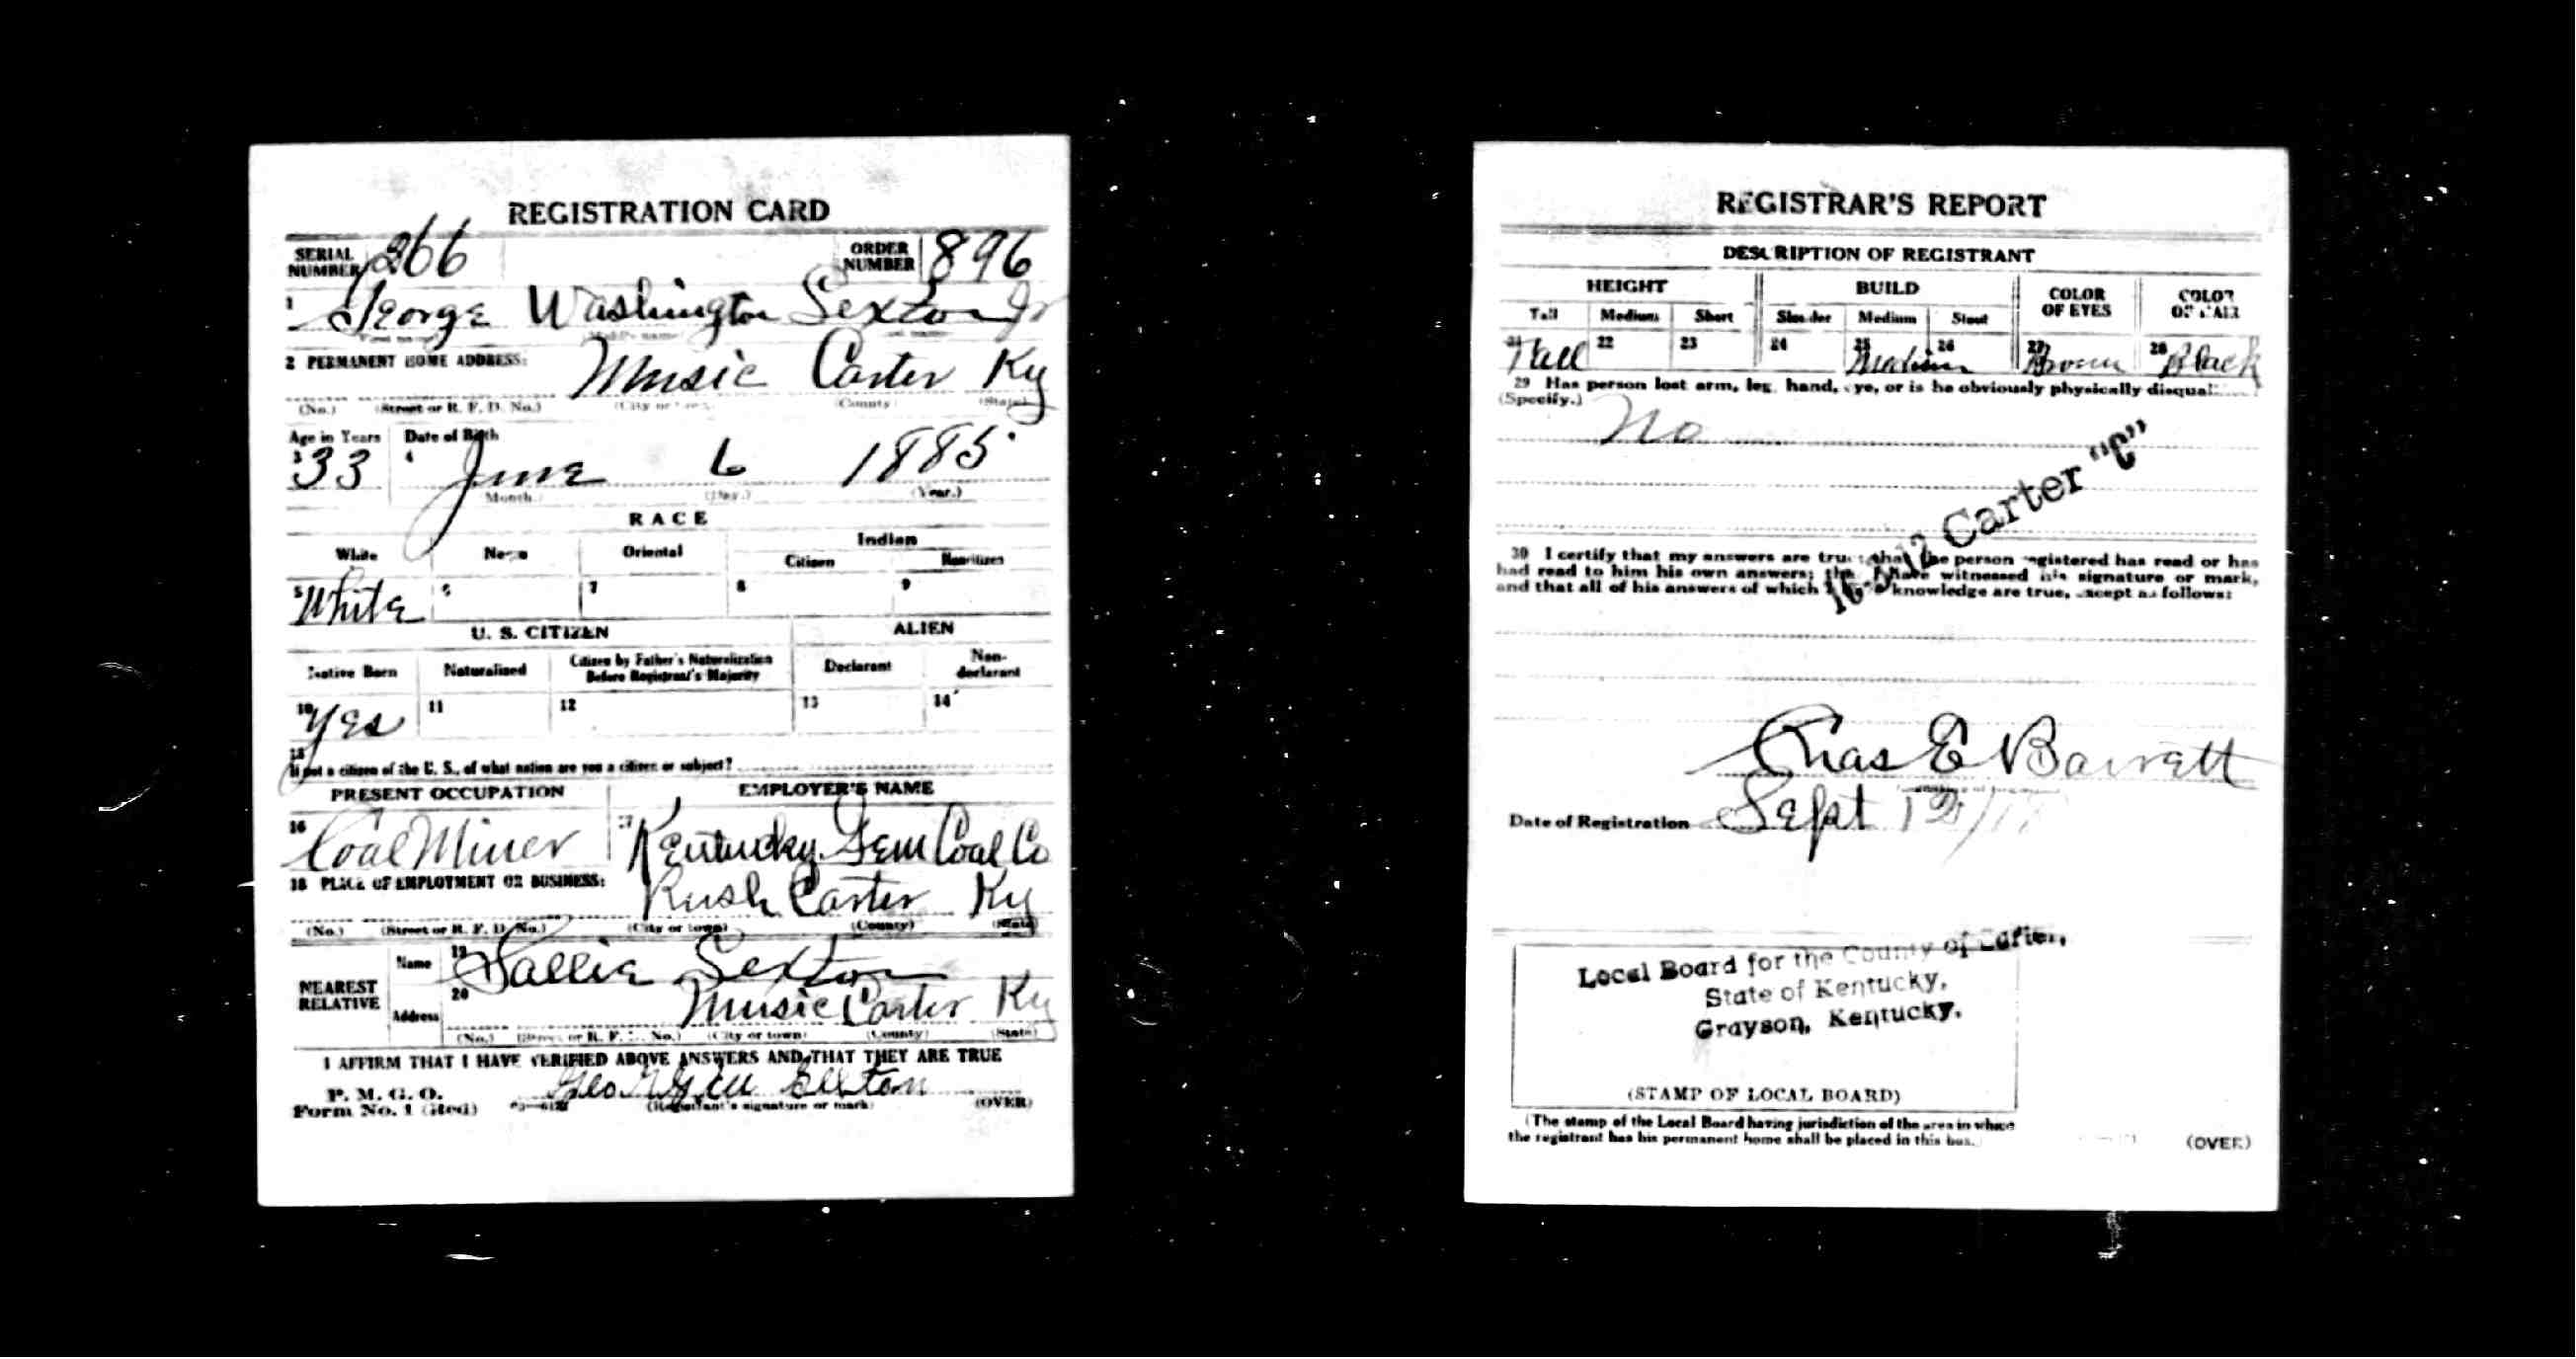 REGISTRATION CARD
SERIAL NUMBER 266 ORDER NUMBER 896
1 George Washington Sexton Jr
2 PERMANENT HOME ADDRESS:
Music Carter Ky
(No.) (Street or R. F. D. No.) (City or town) (County) (State)
Age in Years Date of Birth
3 33 4 June 6 1885
Month. (Day.) (Year.)
RACE
White Negro Oriental Indian
Citizen Noncitizen
5 White 6 7 8 9
U. S. CITIZEN ALIEN
Native Born Naturalized Citizen by Father's Naturalization Before Registrant's Majority Declarant Non-declarant
10 Yes 11 12 13 14
15
If not a citizen of the U. S., of what nation are you a citizen or subject?
PRESENT OCCUPATION EMPLOYER'S NAME
16 Coal Miner 17 Kentucky Gem Coal Co
18 PLACE OF EMPLOYMENT OR BUSINESS:
Rush Carter Ky
(No.) (Street or R. F. D. No.) (City or town) (County) (State)
NEAREST RELATIVE
Name 19 Sallie Sexton
Address 20 Music Carter Ky
(No.) (Street or R. F. D. No.) (City or town) (County) (State)
I AFFIRM THAT I HAVE VERIFIED ABOVE ANSWERS AND THAT THEY ARE TRUE
P. M. G. O.
Form No. 1 (Red) (Registrant's signature or mark) (OVER)
REGISTRAR'S REPORT
DESCRIPTION OF REGISTRANT
HEIGHT BUILD COLOR OF EYES COLOR OF HAIR
Tall Medium Short Slender Medium Stout
21 Tall 22 23 24 25 Medium 26 27 Brown 28 Black
29 Has person lost arm, leg, hand, eye, or is he obviously physically disqual
(Specify.)
No
Carter "C"
30 I certify that my answers are true; that the person registered has read or has
had read to him his own answers; that I have witnessed his signature or mark,
and that all of his answers of which I have knowledge are true, except as follows:
Chas E Barrett
Date of Registration Sept 12/18
Local Board for the County of Carter,
State of Kentucky,
Grayson, Kentucky.
(STAMP OF LOCAL BOARD)
(The stamp of the Local Board having jurisdiction of the area in which
the registrant has his permanent home shall be placed in this box.)
(OVER)